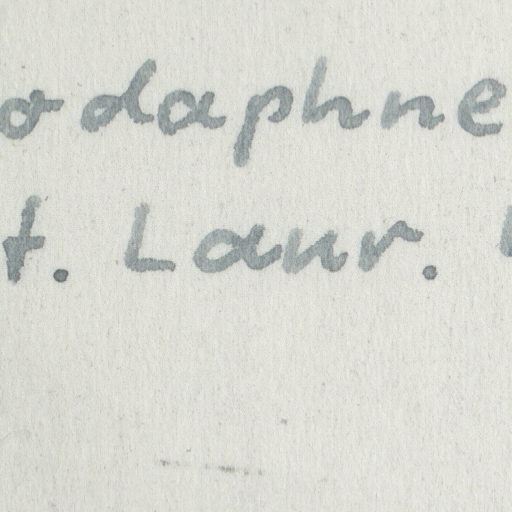 odaphne
t. Laur.